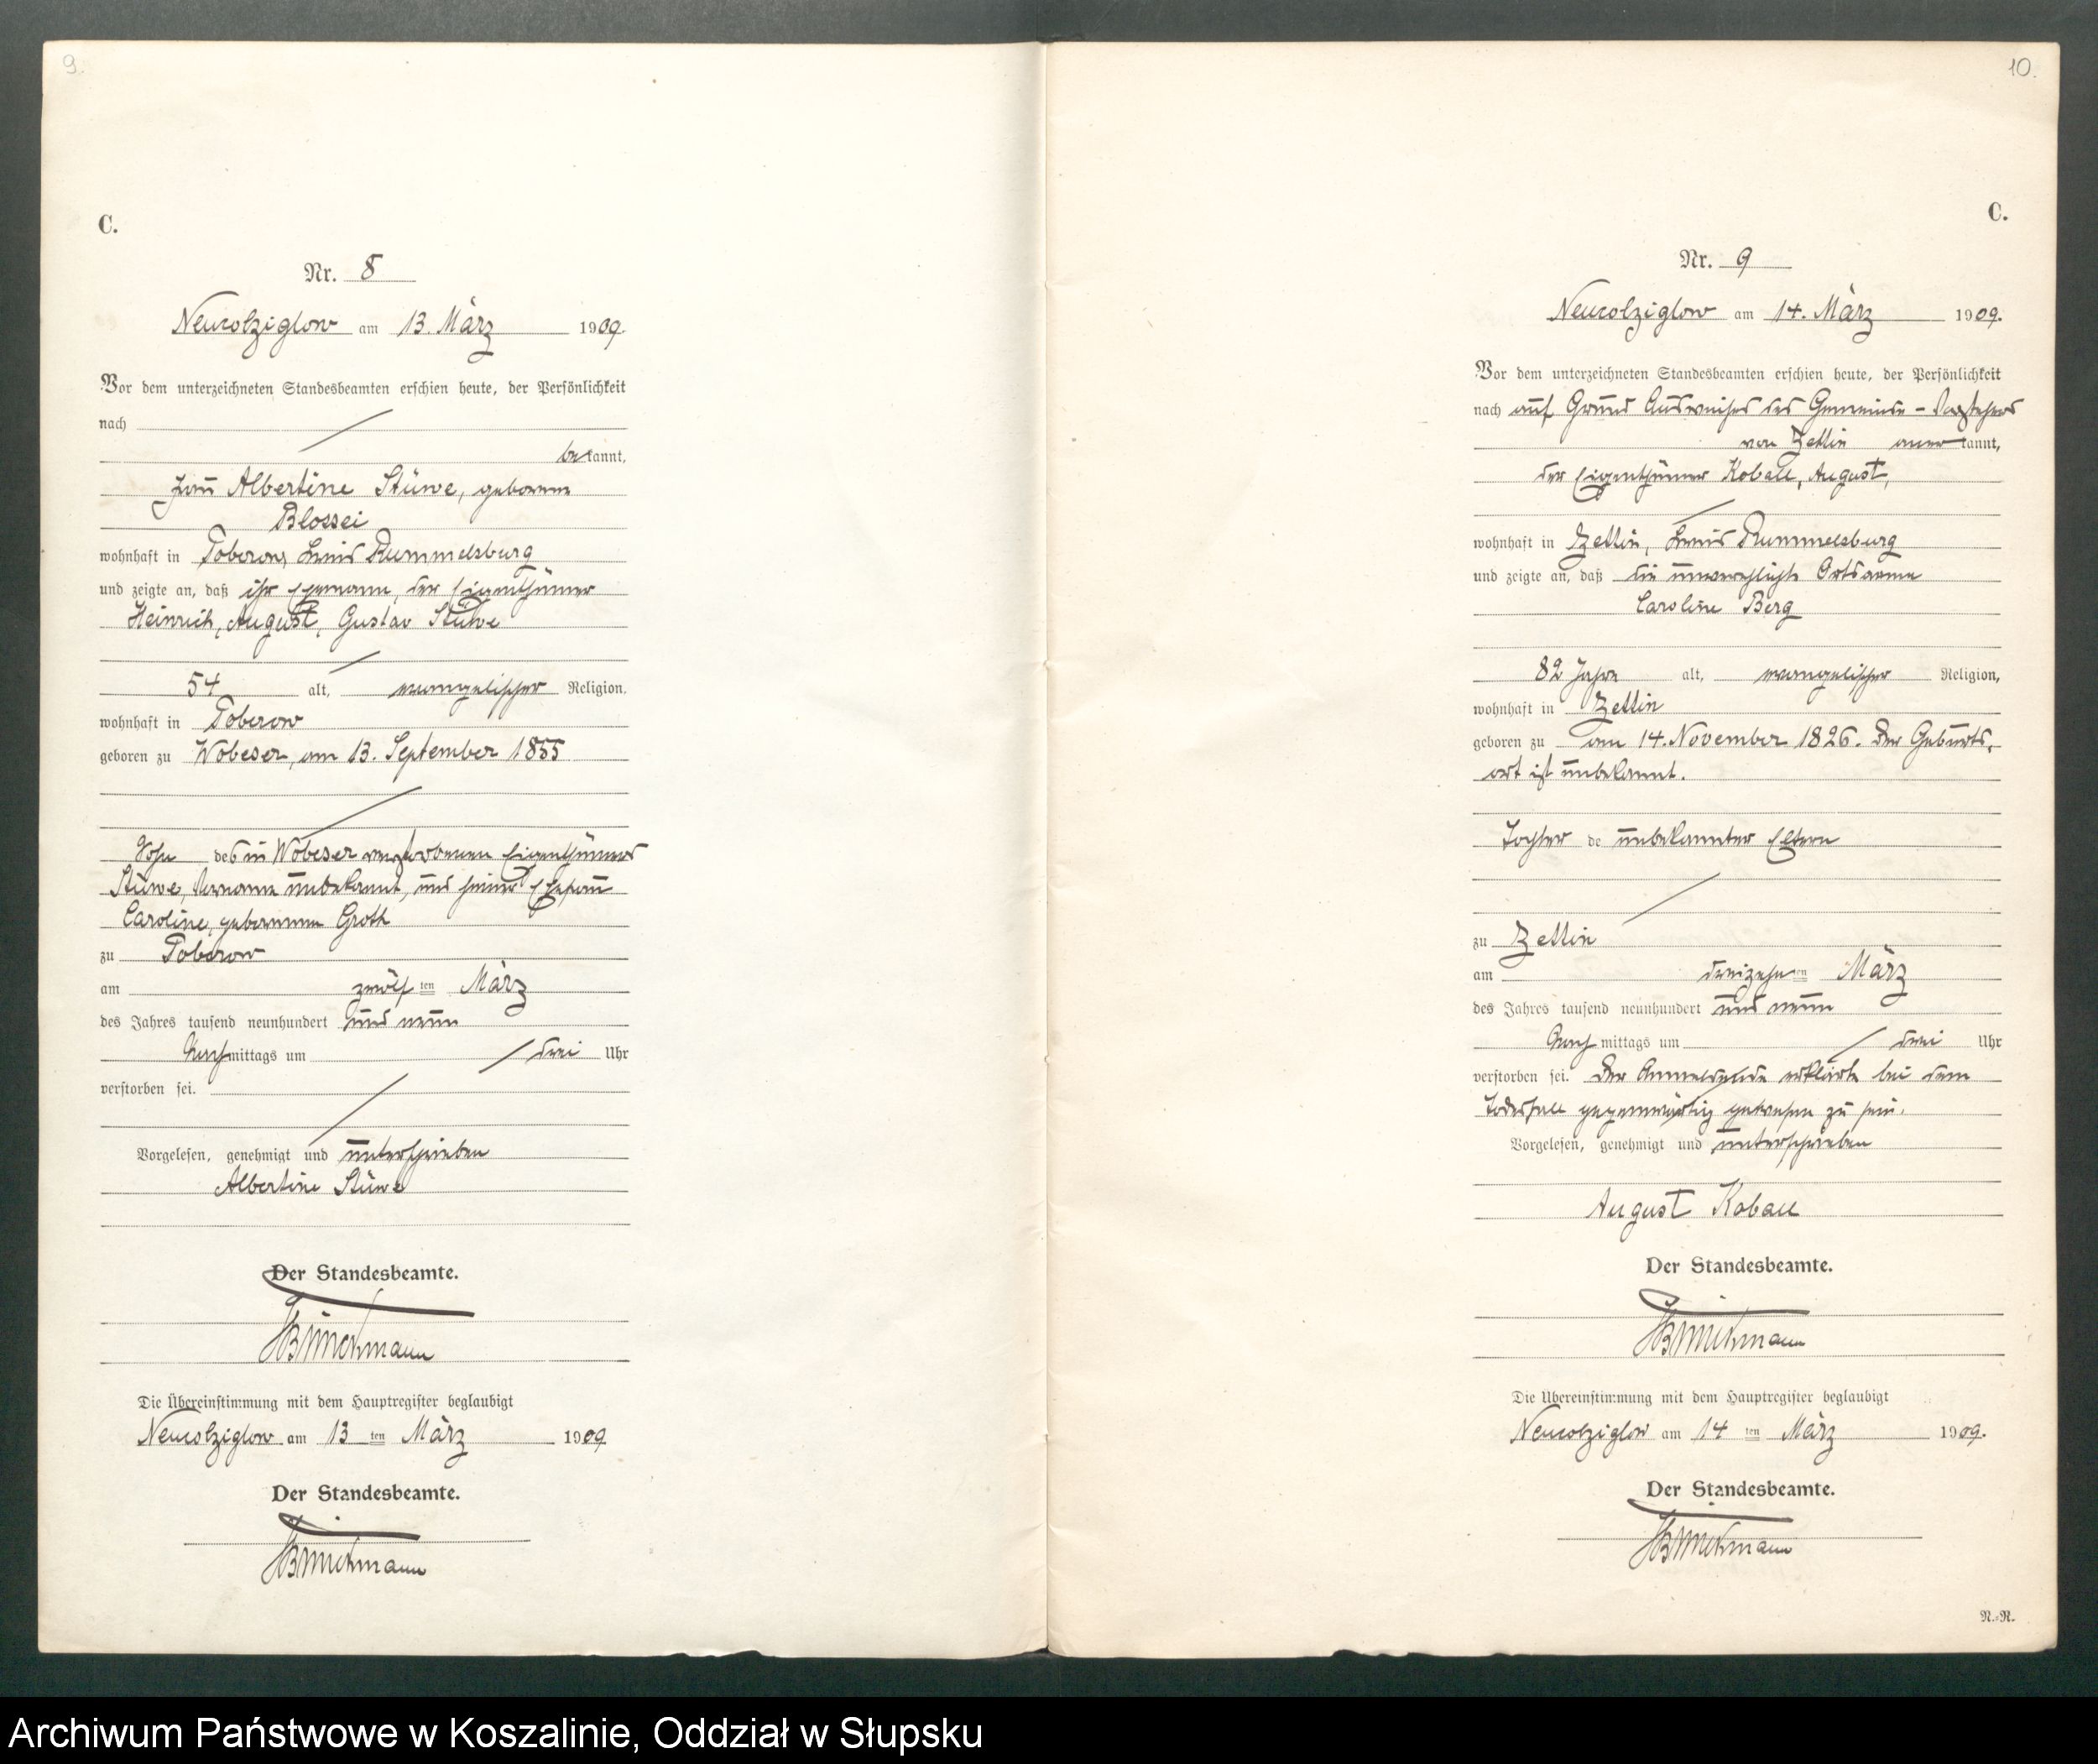 9.
C.
Nr. 8
Neukolziglow am 13. März 1909.
Vor dem unterzeichneten Standesbeamten erschien heute, der Persönlichkeit
nach
bekannt,
Frau Albertine Stüwe, geborene
Blossei
wohnhaft in Poberow, Kreis Rummelsburg
und zeigte an, daß ihr Ehemann, der Eigenthümer
Heinrich, August, Gustav Stüwe
54 alt, evangelischer Religion,
wohnhaft in Poberow
geboren zu Wobeser, am 13. September 1855
Sohn des in Wobeser verstorbenen Eigenthümers
Stüwe, Vorname unbekannt, und seiner Ehefrau
Caroline, geborenen Groth
zu Poberow
am zwölf ten März
des Jahres tausend neunhundert und neun
Nachmittags um drei Uhr
verstorben sei.
Vorgelesen, genehmigt und unterschrieben
Albertine Stüwe
Der Standesbeamte.
Die Übereinstimmung mit dem Hauptregister beglaubigt
Neukolziglow am 13 ten März 1909
Der Standesbeamte.
10.
C.
Nr. 9
Neukolziglow am 14. März 1909.
Vor dem unterzeichneten Standesbeamten erschien heute, der Persönlichkeit
nach auf Grund Ausweises des Gemeinde-Vorstehers
von Zettin anerkannt,
der Eigenthümer Koball, August,
wohnhaft in Zettin, Kreis Rummelsburg
und zeigte an, daß die unverehelichte Ortsarme
Caroline Berg
82 Jahre alt, evangelischer Religion,
wohnhaft in Zettin
geboren zu am 14. November 1826. Der Geburts-
ort ist unbekannt.
Tochter de unbekannter Eltern
zu Zettin
am dreizehn ten März
des Jahres tausend neunhundert und neun
Nachmittags um drei Uhr
verstorben sei. Der Anmeldende erklärte bei dem
Todesfall gegenwärtig gewesen zu sein.
Vorgelesen, genehmigt und unterschrieben
August Koball
Der Standesbeamte.
Die Übereinstimmung mit dem Hauptregister beglaubigt
Neukolziglow am 14 ten März 1909.
Der Standesbeamte.
N.-R.
Archiwum Państwowe w Koszalinie, Oddział w Słupsku